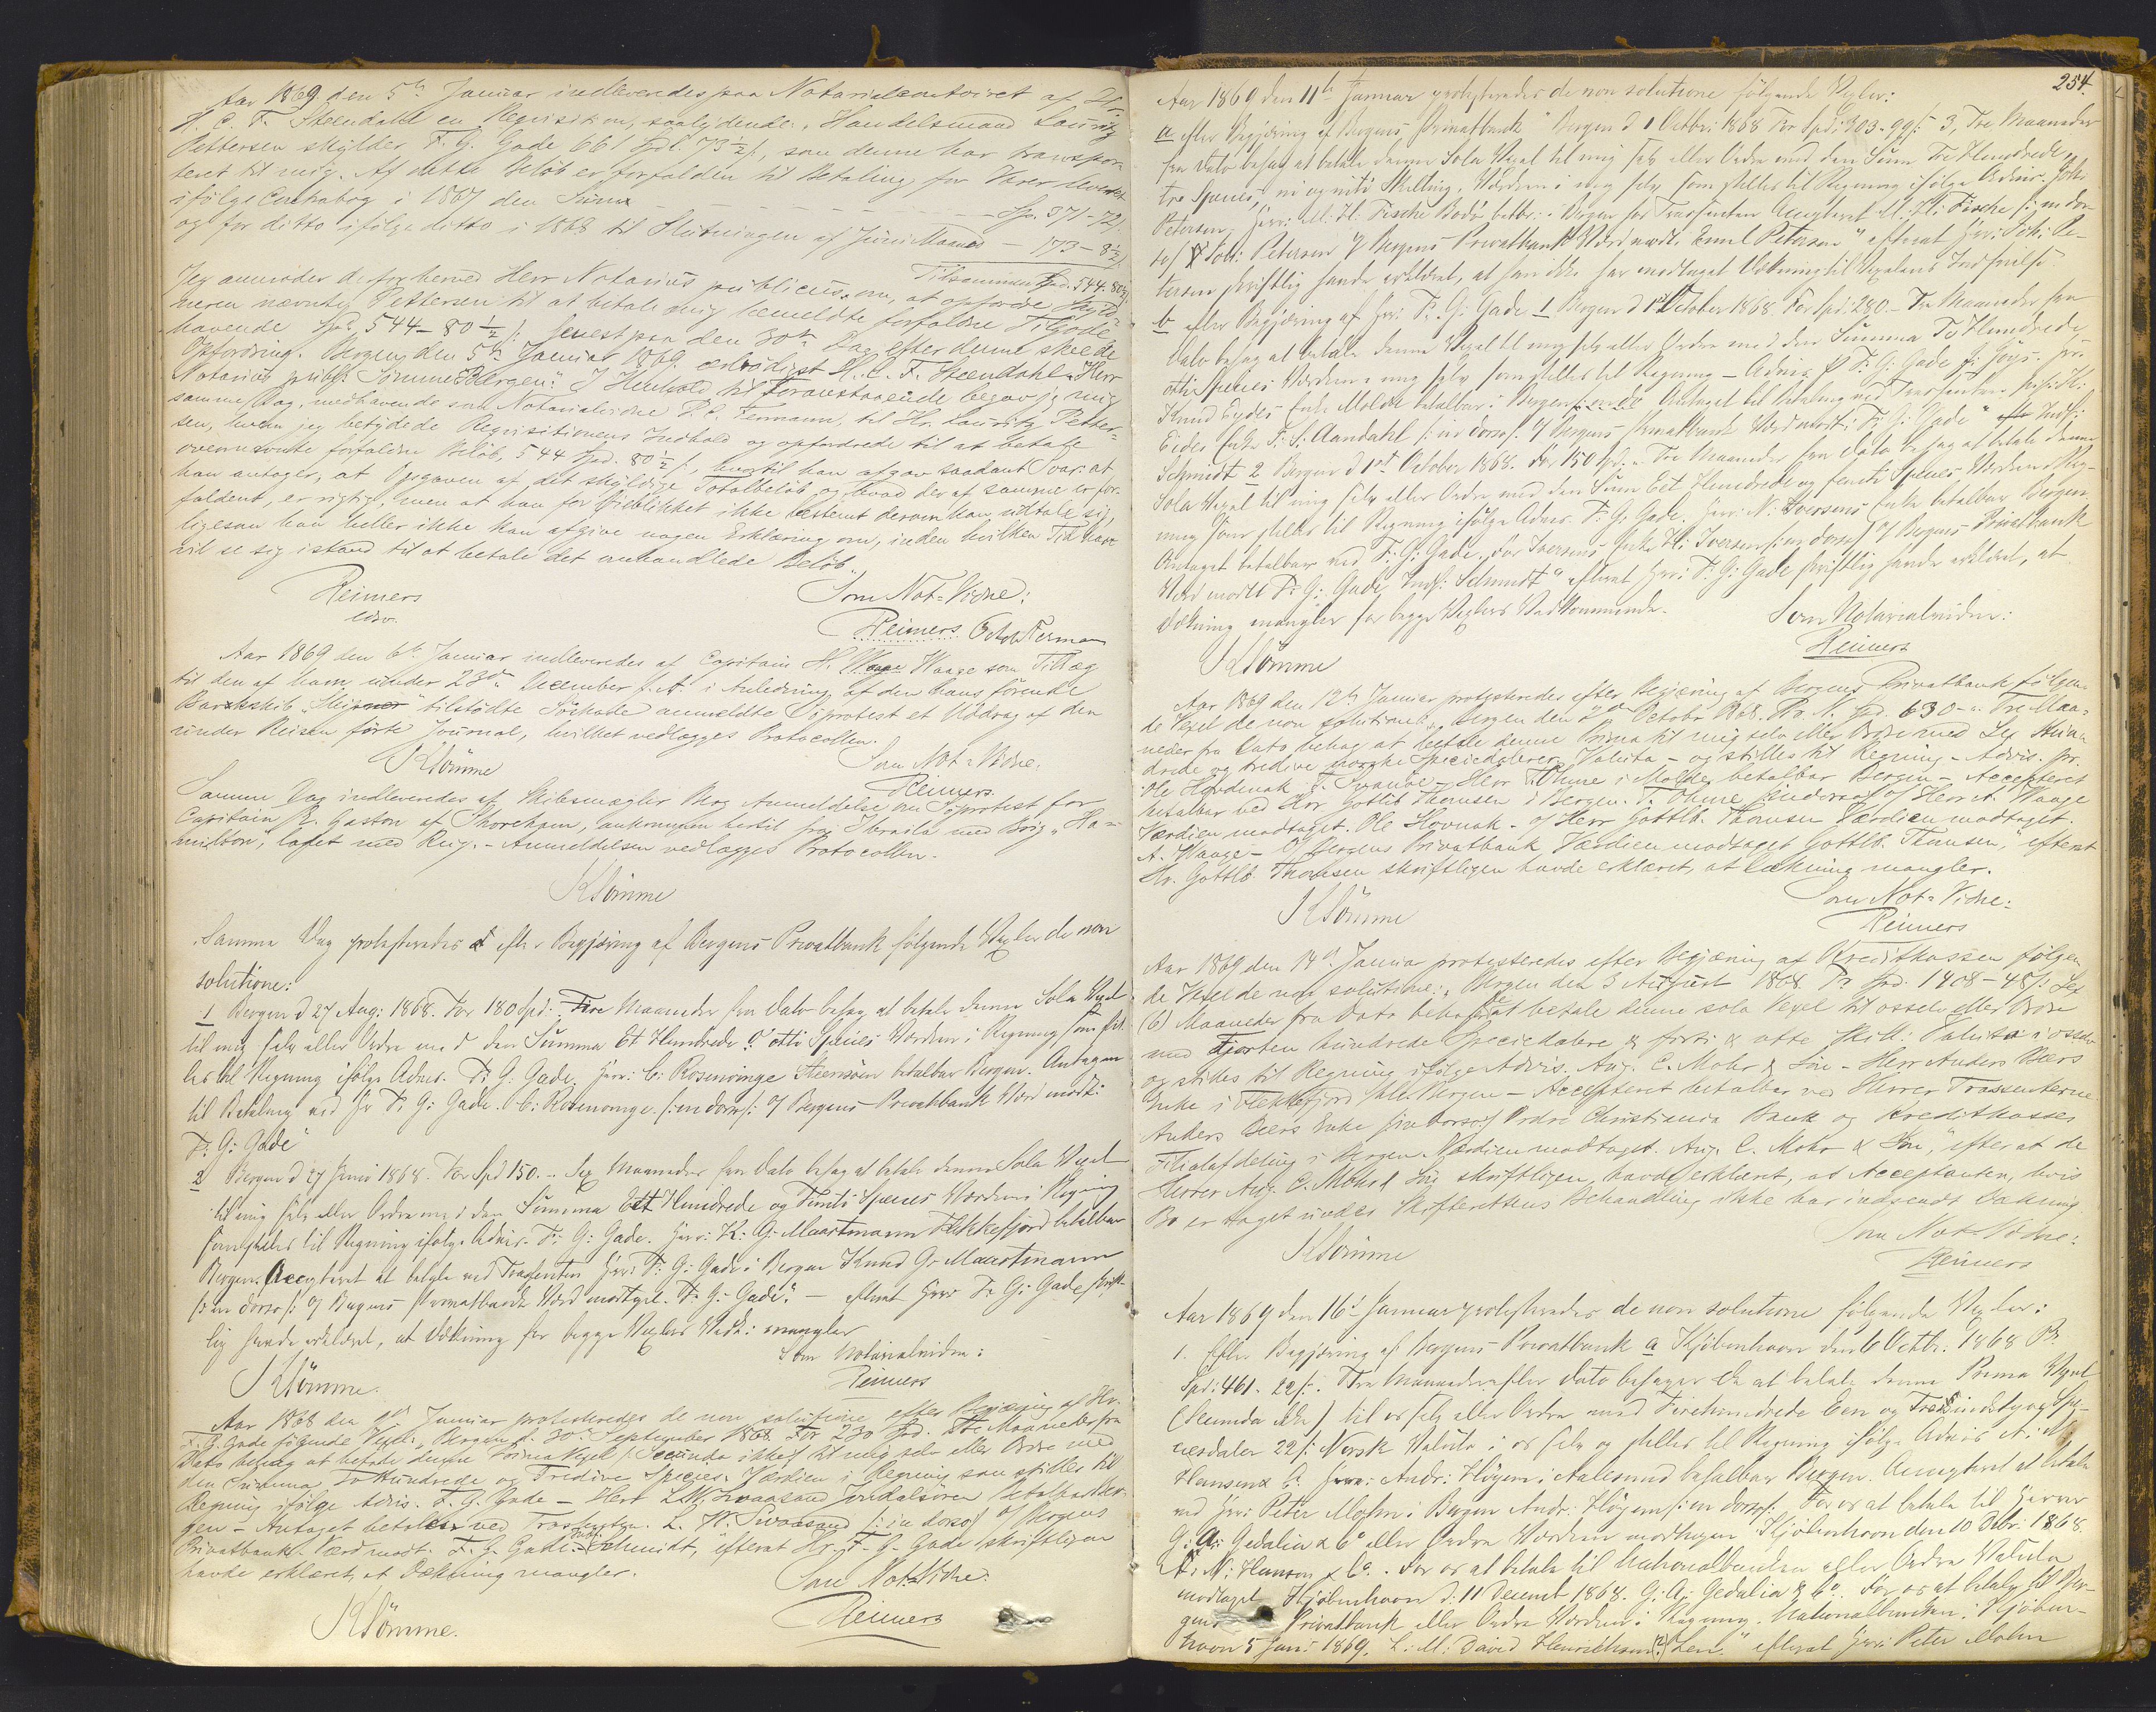 Aar 1869 den 5te Januar indleveredes paa Notarialcontoiret af Hr.
H. C. F. Steendahl en Requisition, saalydende: "Handelsmand Lauritz
Pettersen skylder F. G. Gade 661 Spd. 73½ s, som denne har transpor-
teret til mig. Af dette Beløb er forfalden til Betaling for Varer leveret
ifølge Contrabog i 1867 den Summa - - - Sp. 371-72 s
og for ditto ifølge ditto i 1868 til Slutningen af Juni Maaned - 173-8½ s
Tilsammen Spd. 544. 80½ s.
Jeg anmoder derfor herved Herr Notarius publicus om, at opfordre Skyld-
neren nævnte Pettersen til at betale mig bemeldte forfaldne Tilgode-
havende Spd. 544-80½ s. senest paa den 30te Dag efter denne skeede
Opfordring. Bergen, den 5te Januar 1869. ærbødigst H. C. F. Steendahl. Herr
Notarius publ: Sømme Bergen." I Henhold til Foranstaaende begav jeg mig
samme Dag, medhavende som Notarialvidne O. C. Fermann, til Hr. Lauritz Petter-
sen, hvem jeg betydede Requisitionens Indhold og opfordrede til at betale
ovennævnte forfaldne Beløb, 544 Spd. 80½ s, hvortil han afgav saadant Svar: at
han antager, at Opgaven af det skyldige Totalbeløb og hvad deraf samme er for-
faldent, er rigtig, men at han for Øieblikket ikke bestemt derom kan udtale sig,
ligesom han heller ikke kan afgive nogen Erklæring om, inden hvilken Tid han
vil se sig istand til at betale det omhandlede Beløb.
Reimers
Som Not-Vidne:
cdsv.
Reimers
Aar 1869 den 6te Januar indleveredes af Capitain H. Waage som Tillæg
til den af ham under 23de December f. A. i Anledning af den hans førende
Barkskib tilstødte Søskade anmeldte Søprotest et Uddrag af den
under Reisen førte Journal, hvilket vedlægges Protocollen.
KSømme
Som Not-Vidne:
Reimers
Samme Dag indleveredes af Skibsmægler Berg Anmeldelse om Søprotest for
Capitain E. Gaston af Shoreham, ankommen hertil fra Ibraila med Brig "Ha-
milton", ladet med Rug. - Anmeldelsen vedlægges Protocollen.
KSømme
Samme Dag protesteredes efter Begjæring af Bergens Privatbank følgende Vexler de non
solutione:
1 Bergen d 27 Aug: 1868. For 180 Spd: Fire Maaneder fra Dato behag at betale denne Sola Vexel
til mig selv eller Ordre med den Summa Et Hundrede & otti Species Værdien i Regning som stil-
les til Regning ifølge Advis. F: G: Gade. Herr: C: Rosenvinge Steensøen betalbar Bergen. Antagen
til Betaling ved Hr F: G: Gade. C: Rosenvinge. /:in dorso/: O/ Bergens Privatbank Værd modt:
F: G: Gade"
2 Bergen d 27 Juni 1868. For Spd 150. - Sex Maaneder fra Dato behag at betale denne Sola Vexel
til mig selv eller Ordre med den Summa Ett Hundrede og Femti Species Værdien i Regning
som stilles til Regning ifølge Advis. F: G: Gade. Herr: K: G: Maartmann Flekkefjord betalbar
Bergen. Accepteret at betale ved Trassenten Herr F: G: Gade i Bergen Knud G. Maartmann
/:in dorso/: O/ Bergens Privatbank Værd modtget. F: G: Gade." - efterat Herr F: G: Gade skrift-
lig havde erklæret, at Dækning for begge Vexlers Vedk: mangler
Som Notarialvidne:
KSømme.
Reimers
Aar 1868 den Januar protesteredes de non solutione efter Begjæring af Hr.
F. G. Gade følgende Vexel: "Bergen d. 30. September 1868. For 230 Spd. Tre Maaneder fra
Dato behag at betale denne Prima Vexel /Secunda ikke/ til mig selv eller Ordre med
den Summa To Hundrede og Tredive Species. Værdien i Regning som stilles til
Regning ifølge Advis. F. G. Gade - Herr L. W. Svaasand Jondalsøren Betalbar Ber-
gen - Antaget betalbar ved Trassenten. L. W. Svaasand /:in dorso/ O/ Bergens
Privatbank. Værd modt. F. G. Gade. Schmidt", efterat Hr. F. G. Gade skriftligen
havde erklæret, at Dækning mangler.
Som Not-Vidne:
KSømme.
Reimers
254.
Aar 1869 den 11te Januar protesteredes de non solutione følgende Vexler:
a efter Begjæring af Bergens Privatbank "Bergen d 1 Octbr: 1868 For Spd: 303-99 s: 3, Tre Maaneder
fra Dato behag at betale denne Sola Vexel til mig selv eller Ordre med den Sum Tre Hundrede
tre Species, ni og niti Skilling. Værdien i mig selv som stilles til Regning ifølge Advis. Joh:
Petersen Herr: M. H. Fische Bodø betbr: i Bergen hos Trassenten Accepteret M. H: Fische /:in dor-
so/ Joh: Petersen O/ Bergens Privatbank Værd modt. Emil Petersen" efterat Herr: Joh: Pe-
tersen skriftlig havde erklæret, at han ikke har modtaget Dækning til Vexelens Indfrielse
b efter Begjæring af Herr: F. G: Gade 1 Bergen d 1st October 1868. For Spd: 280. - Tre Maaneder fra
Dato behag at betale denne Vexel til mig selv eller Ordre med den Summa To Hundrede
otti Species Værdien i mig selv som stilles til Regning - Advis F: G: Gade
Knud Eides Enke Molde betalbar i Bergen Antaget til betaling ved Trassenten
Eides Enke F: S: Aandahl /:in dorso/: O/ Bergens Privatbank Værd modt: F: G: Gade"
Schmidt 2 Bergen d 1st October 1868. For 150 Spd: Tre Maaneder fra Dato behag at betale denne
Sola Vexel til mig selv eller Ordre med den Sum Eet Hundrede og femti Species Værdien i Reg-
ning som stilles til Regning ifølge Advis. F: G: Gade. Herr: N: Iversens Enke betalbar Bergen
Antaget betalbar ved F: G: Gade. For Iversens Enke H: Iversen /:in dorso/ O/ Bergens Privatbank
Værd modtt F: G: Gade, Schmidt" efterat Herr: F: G: Gade skriftlig havde erklæret, at
Dækning mangler for begge Vexlers Vedkommende.
Som Notarialvidne:
KSømme
Reimers
Aar 1869 den 12te Januar protesteredes efter Begjæring af Bergens Privatbank følgen-
de Vexel de non solutione: "Bergen den October 1868. Pr. N. Spd. 630- Tre Maa-
neder fra Dato behag at betale denne Prima til mig selv eller Ordre med Sex Hun-
drede og tredive norske Speciedaler Valuta - og stilles til Regning - Advis. pr.
Ole Hovdenak - F. Svanøe - Herr F. Thune i Molde betalbar Bergen - Accepteret
betalbar ved Herr Gottlb Thomsen i Bergen. F. Thune /indorso/ O/ Herr A. Waage
Værdien modtaget. Ole Hovnak. O/ Herr Gottlb. Thomsen Værdien modtaget.
A. Waage - O/ Bergens Privatbank Værdien modtaget Gottlb. Thomsen," efterat
Hr. Gottlb. Thomsen skriftligen havde erklæret, at Dækning mangler.
Som Not-Vidne:
KSømme
Reimers
Aar 1869 den 14de Januar protesteredes efter Begjæring af Kreditkassen følgen-
de Vexel de non solutione: "Bergen den 3 August 1868. Pr Spd. 1408-48 s. Sex
(6) Maaneder fra Dato behag at betale denne sola Vexel til osselv eller Ordre
med Fjorten hundrede Speciedalere & forti & otte Skill: Valuta i osselv
og stilles til Regning ifølge Advis. Aug. C. Mohr & Søn - Herr Anders Beers
Enke i Flekkefjord btlb. Bergen - Accepteret betalbar ved Herrer Trassenterne
Anders Beers Enke /in dorso/ Ordre Christiania Bank og Kreditkasses
Filialafdeling i Bergen Værdien modtaget. Aug. C. Mohr & Søn," efterat de
Herrer Aug. C. Mohr & Søn skriftligen havde erklæret, at Acceptanten, hvis
Bo er taget under Skifterettens Behandling ikke har indsendt Dækning
Som Not-Vidne:
KSømme
Reimers
Aar 1869 den 16de Januar protesteredes de non solutione følgende Vexler:
1. Efter Begjæring af Bergens Privatbank a Kjøbenhavn den 6 Octbr. 1868 Pr.
Spd: 461. 22 s. Tre Maaneder efter Dato behager De at betale denne Prima Vexel
(Secunda ikke) til os selv eller Ordre med Firehundrede Een og Tredsindstyve Spe-
ciesdaler 22 s: Norsk Valuta i os selv og stilles til Regning ifølge Advis A: N:
Hansen & C. Herr: Andr: Høyem i Aalesund betalbar Bergen. Accepteret at betale
ved Herr: Peter Mohn i Bergen Andr: Høyem /:in dorso/: For os at betale til Herrer
G: A: Gedalia & Co eller Ordre Værdien modtagen Kjøbenhavn den 10 Dcbr: 1868.
A: N: Hansen & Co. For os at betale til Nationalbanken eller Ordre Valuta
modtaget Kjøbenhavn d: 11 Decemb 1868. G: A: Gedalia & Co. For os at betale til Ber-
gens Privatbank eller Ordre Værdien i Regning. Nationalbanken i Kjøben-
havn 5 Jan: 1869. L. M: David Henrichsen (?) Levi" efterat Herr: Peter Mohn